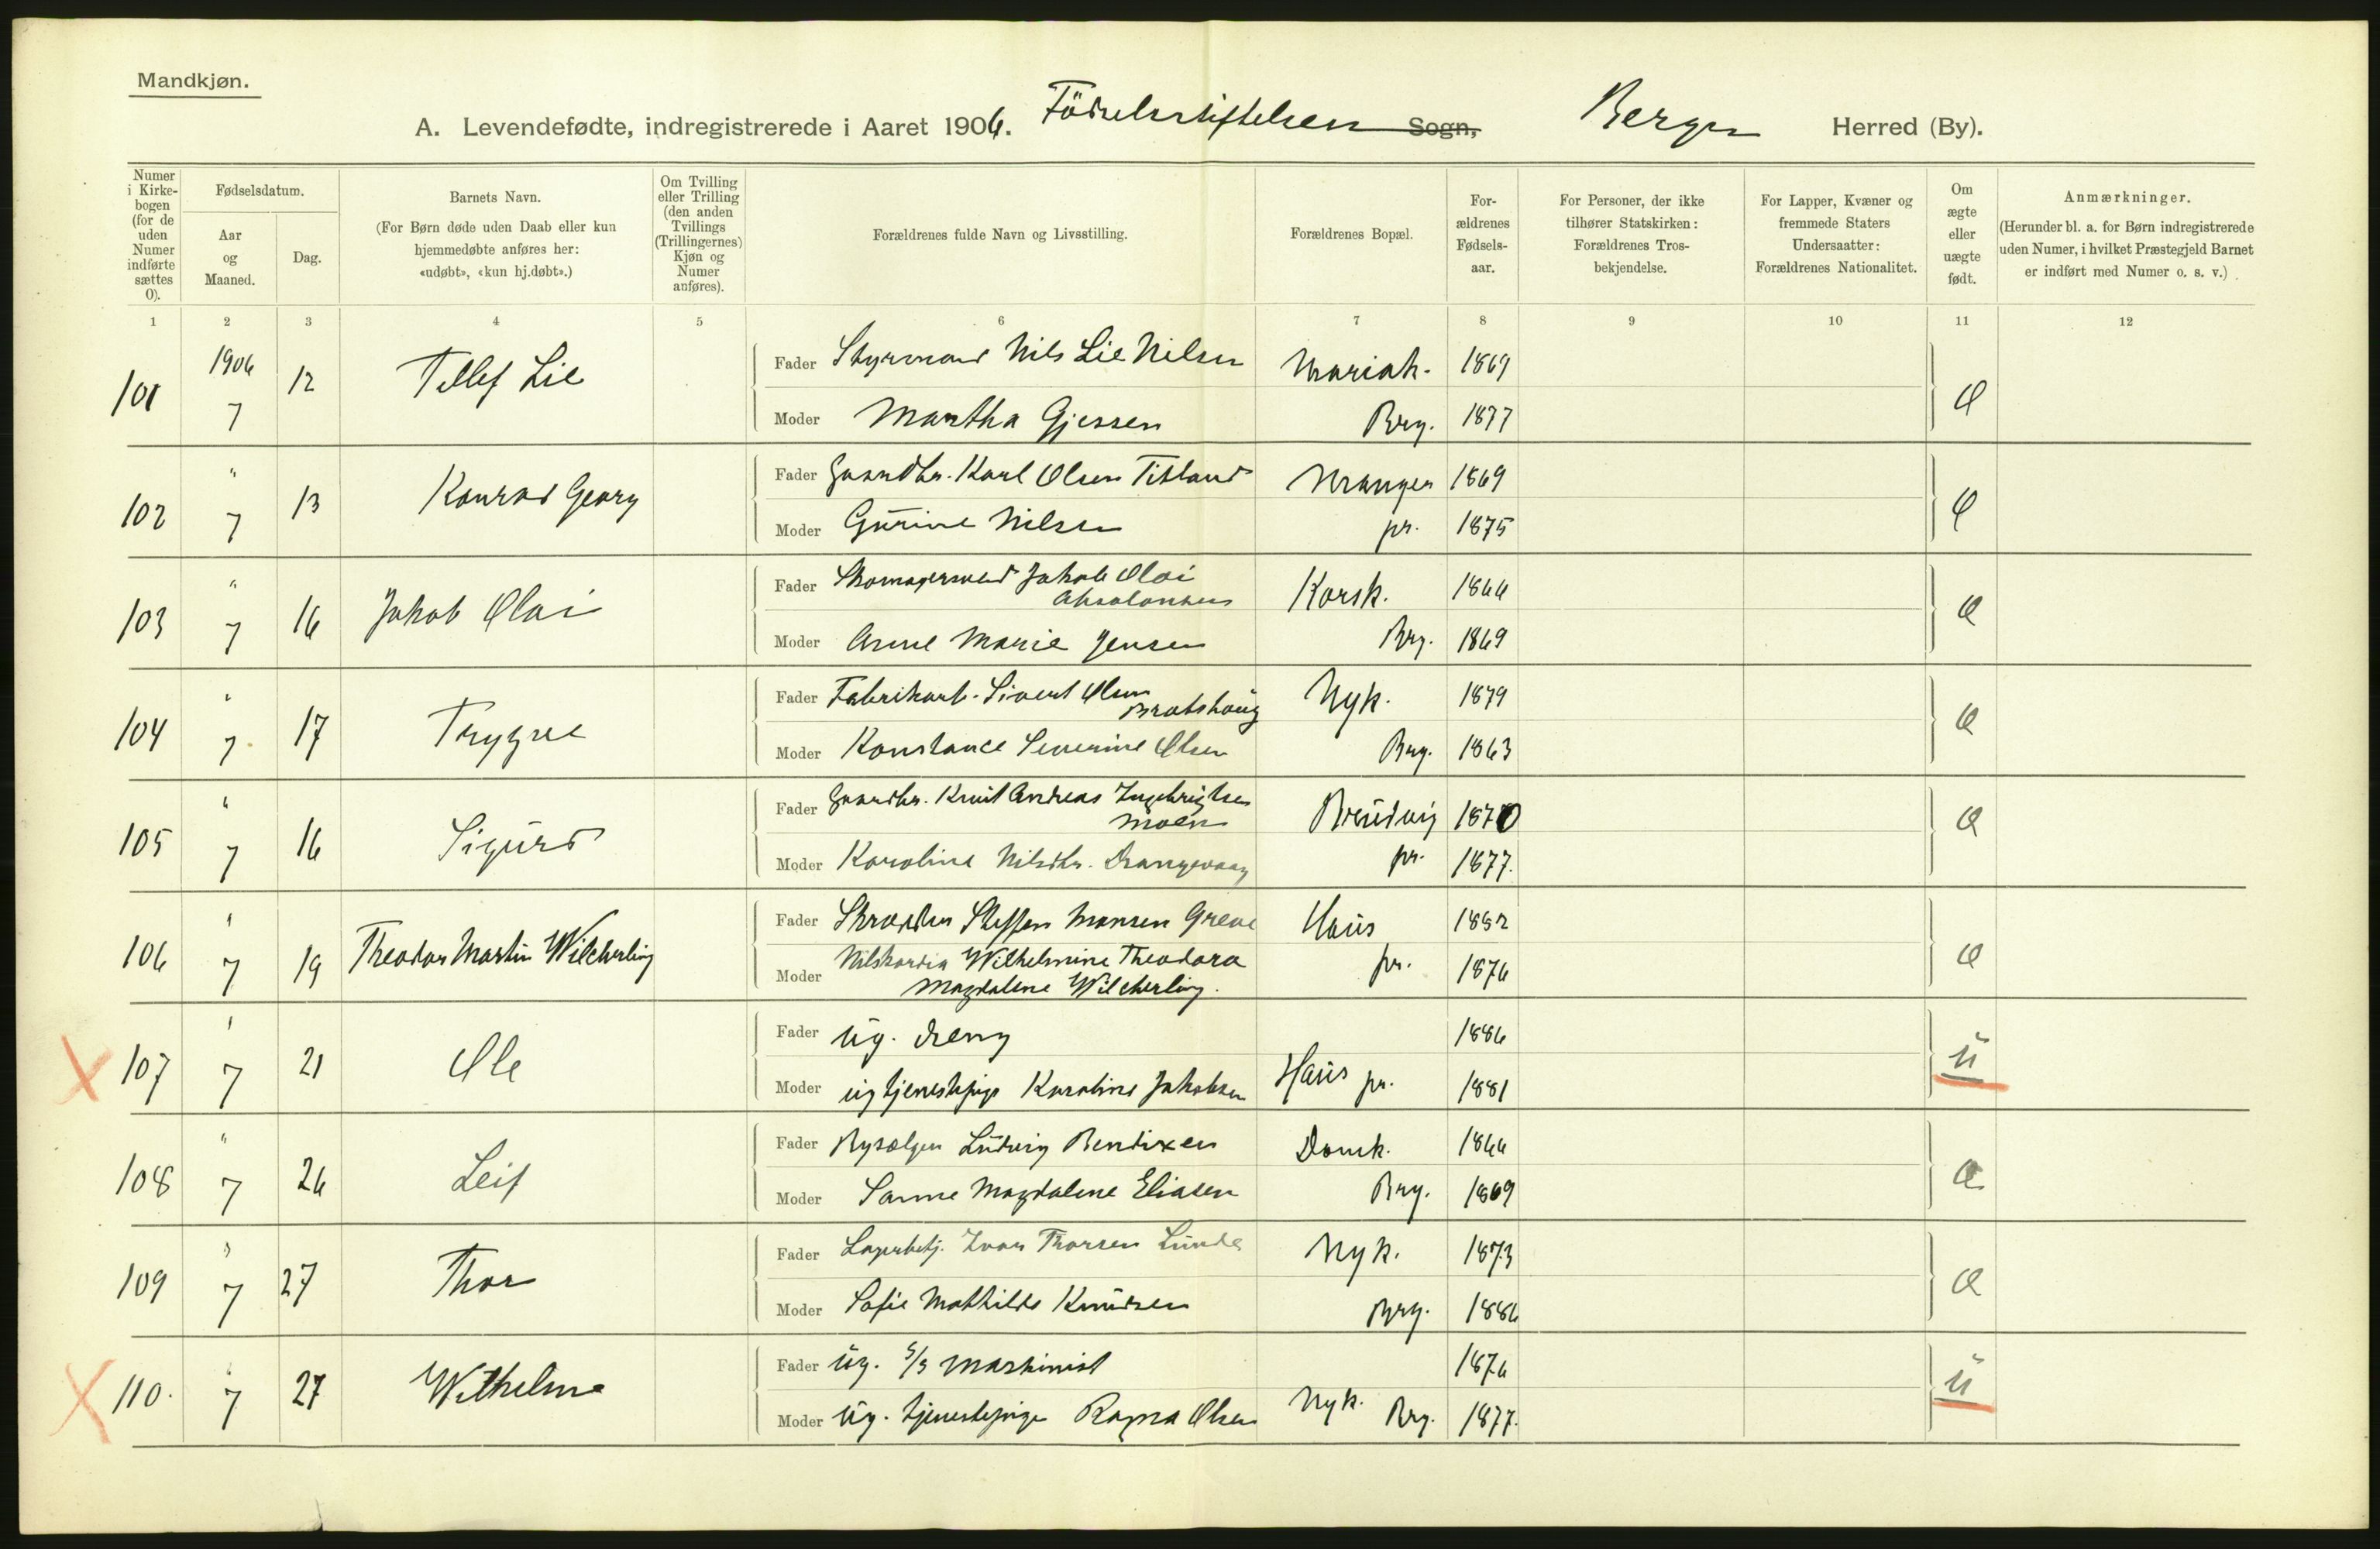 Mandkjøn.
A. Levendefødte, indregistrerede i Aaret 1906. Födselsstiftelsen Sogn, Bergen Herred (By).
Numer i Kirkebogen (for de uden Numer indførte sættes 0).
Fødselsdatum.
Aar og Maaned.
Dag.
Barnets Navn.
(For Børn døde uden Daab eller kun hjemmedøbte anføres her: «udøbt», «kun hj.døbt».)
Om Tvilling eller Trilling (den anden Tvillings (Trillingernes) Kjøn og Numer anføres).
Forældrenes fulde Navn og Livsstilling.
Forældrenes Bopæl.
Forældrenes Fødselsaar.
For Personer, der ikke tilhører Statskirken: Forældrenes Trosbekjendelse.
For Lapper, Kvæner og fremmede Staters Undersaatter: Forældrenes Nationalitet.
Om ægte eller uægte født.
Anmærkninger.
(Herunder bl. a. for Børn indregistrerede uden Numer, i hvilket Præstegjeld Barnet er indført med Numer o. s. v.)
1 2 3 4 5 6 7 8 9 10 11 12
101 1906 7 12 Tellef Lie Fader Styrmand Nils Lie Nilsen Mariak. 1869 Æ
Moder Martha Gjessen Brg. 1877
102 " 7 13 Konrad Georg Fader Gaardbr. Karl Olsen Titland Manger 1869 Æ
Moder Gurine Nilsen pr. 1875
103 " 7 16 Jakob Olai Fader Skomagersvend Jakob Olai Absalonsen Korsk. 1866 Æ
Moder Anne Marie Jensen Brg. 1869
104 " 7 17 Trygve Fader Fabrikarb. Sivert Olsen Bratshaug Nyk. 1879 Æ
Moder Konstance Severine Olsen Brg. 1863
105 " 7 16 Sigurd Fader Gaardbr. Knut Andreas Ingebrigtsen Moen 1870 Æ
Moder Karoline Nilsdtr. Drangevaag pr. 1877.
106 " 7 19 Theodor Martin Wilcherling Fader Skrædder Steffen Monsen Greve Haus 1852 Æ
Moder Wilhelmine Theodora Magdalene Wilcherling. pr. 1876
107 " 7 21 Ole Fader ug. dreng 1886 U
Moder ug tjenestepige Karoline Jakobsen Haus pr. 1881
108 " 7 26 Leif Fader Bysælger Ludvig Bendixen Domk. 1866 Æ
Moder Sanne Magdalene Eliasen Brg. 1869
109 " 7 27 Thor Fader Lagerbetj. Ivar Thorsen Lunde Nyk. 1873 Æ
Moder Sofie Mathilde Knudsen Brg. 1886
110. " 7 27 Wilhelm Fader ug. S/S maskinist 1876 U
Moder ug. tjenestepige Ragna Olsen Nyk. Brg. 1877.